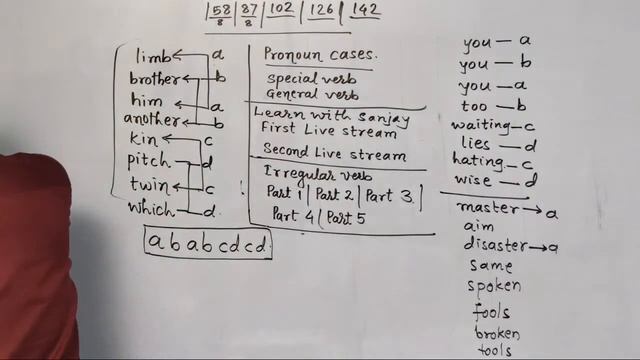 |58/8|87/8|102|126|142
limb a
brother b
him a
another b
kin c
pitch d
twin c
which d.
a b a b c d c d.
Pronoun cases.
Special verb
General verb
Learn with Sanjay
First Live stream
Second Live stream
Irregular verb
Part 1 | Part 2 | Part 3 |
Part 4 | Part 5
you — a
you — b
you — a
too — b
waiting — c
lies — d
hating — c
wise — d
master → a
aim
disaster → a
same
spoken
fools
broken
tools